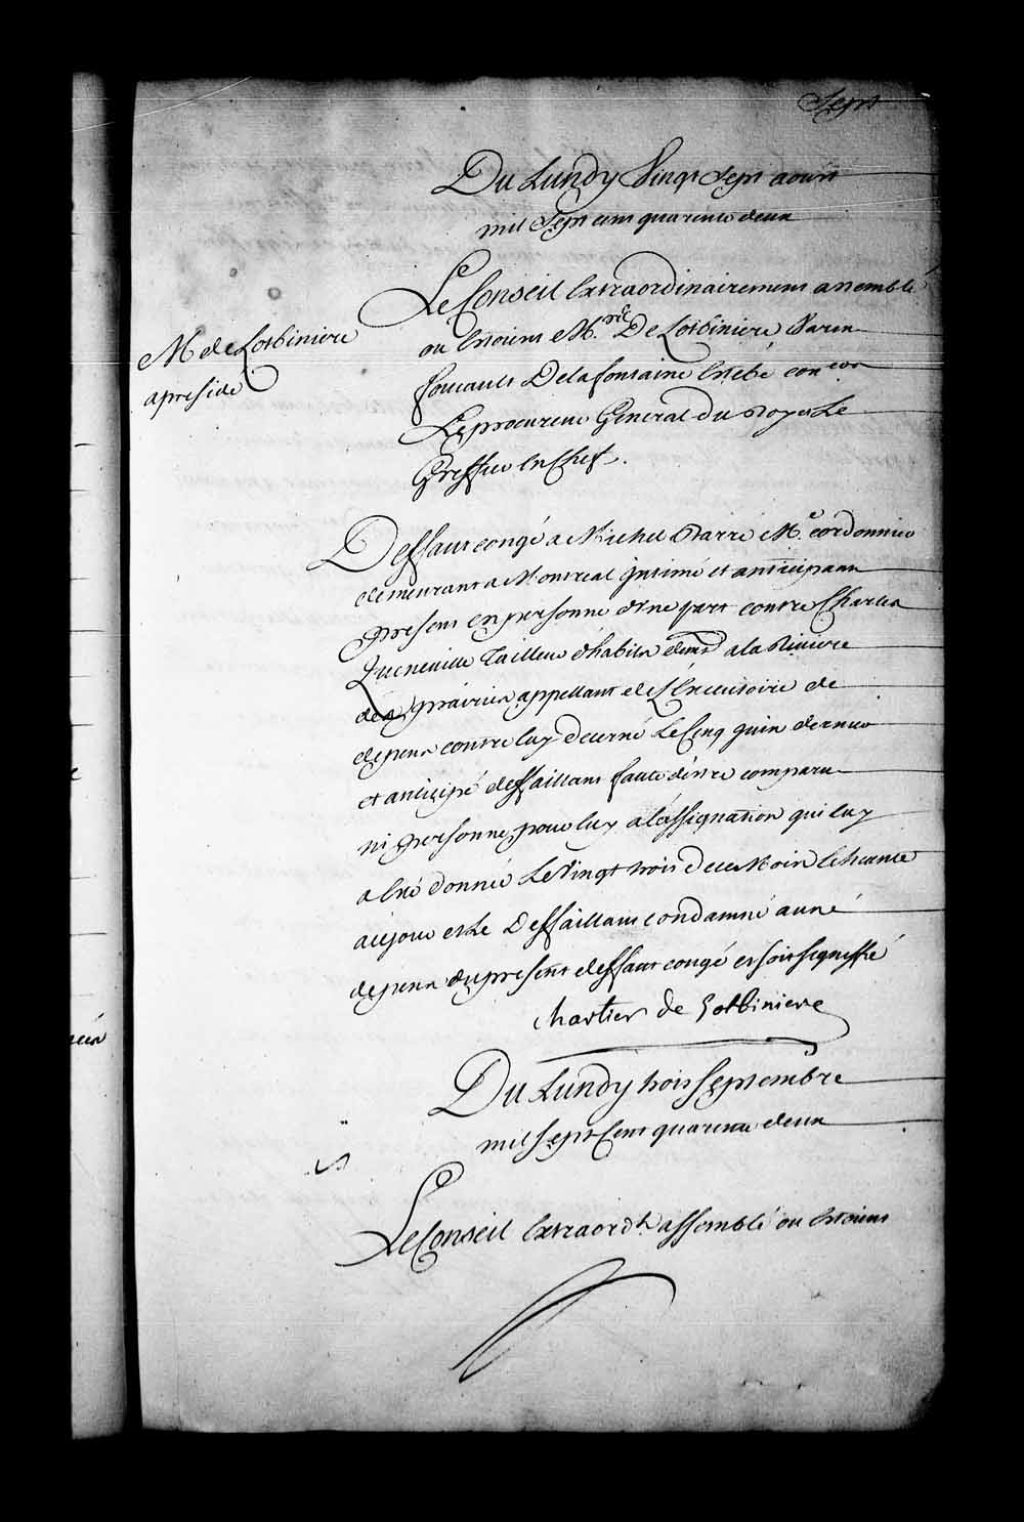 Sept
Du Lundy Vingt Sept aoust
mil Sept cent quarente deux
Le Conseil Extraordinairement assemblé
ou Etoient M.rs De Lotbiniere Varin
foucault Delafontaine Estebé con.ers
Le procureur General du Roy et Le
Greffier En Chef.
M de Lotbiniere
a preside
Deffaut congé a Michel Barré M.e cordonnier
demeurant a Montreal Intimé et anticipant
present en personne d'une part contre Charles
Queneville Tailleur d'habits dem.t a la Riviere
des prairies appellant de L'Executoire de
depens contre luy decerné Le Cinq Juin dernier
et anticipé deffaillant faute d'estre comparu
ni personne pour luy a l'assignation qui luy
a Eté donnée Le Vingt trois de ce Mois Echeante
a ce jour et Le Deffaillant condamné aux
depens du present deffaut congé et soit signiffié
Chartier de Lotbiniere
Du Lundy trois Septembre
mil Sept Cent quarente deux
Le Conseil Extraord.t assemblé ou Etoient